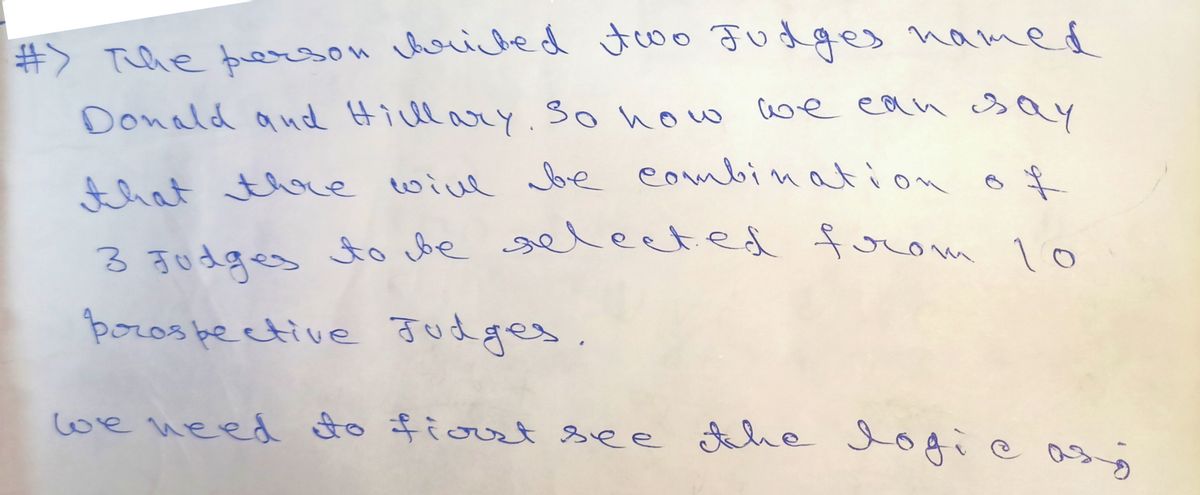 #> The person bribed two Judges named
Donald and Hillary. So now we can say
that there will be combination of
3 Judges to be selected from 10
prospective Judges.
we need to first see the logic as;